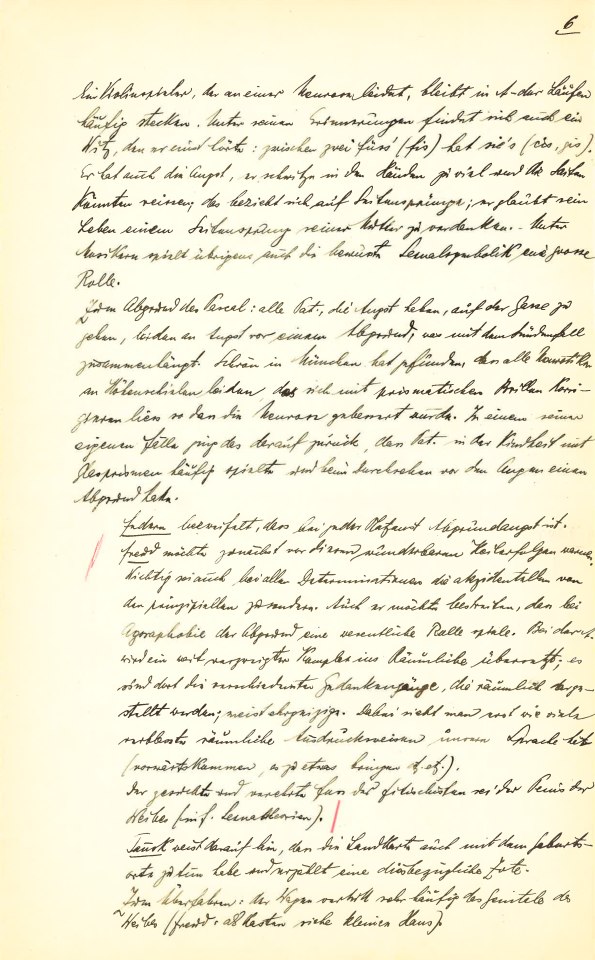 6
Ein Violinspieler, der an einer Neurose leidet, bleibt in A-dur Läufen
häufig stecken. Unter seinen Erinnerungen findet sich auch ein
Witz, den er einst hörte: zwischen zwei Füss' (fis) hat sie's (cis, gis).
Er hat auch die Angst, er schwitze in den Händen zu viel und die Saiten
könnten reissen; das bezieht sich auf Seitensprünge; er glaubt sein
Leben einem Seitensprung seiner Mutter zu verdanken. - Unter
Musikern spielt übrigens auch die bewusste Sexualsymbolik eine grosse
Rolle.
Zum Abgrund des Pascal: alle Pat., die Angst haben, auf der Gasse zu
gehen, leiden an Angst vor einem Abgrund, was mit dem Sündenfall
zusammenhängt. Schön in München hat gefunden, dass alle Neurotiker
an Höhenschielen leiden, das sich mit prismatischen Brillen korri-
gieren liess so dass die Neurose gebessert wurde. In einem seiner
eigenen Fälle ging das darauf zurück, dass Pat. in der Kindheit mit
Glasprismen häufig spielte und beim Durchsehen vor den Augen einen
Abgrund hatte.
Federn bezweifelt, dass bei jeder Platzangst Abgrundangst ist.
Freud möchte zunächst vor diesen wunderbaren Heilerfolgen warnen.
Wichtig sei auch bei allen Determinationen die akzidentellen von
den prinzipiellen zu sondern. Auch er möchte bestreiten, dass bei
Agoraphobie der Abgrund eine wesentliche Rolle spiele. Bei der A.
wird ein weit verzweigter Komplex ins Räumliche übersetzt; es
sind dort die verschiedensten Gedankengänge, die räumlich darge-
stellt werden; meist ehrgeizige. Dabei sieht man erst wie viele
verblasste räumliche Ausdrucksweisen unsere Sprache hat
(vorwärtskommen, es zu etwas bringen etc. etc.).
Der gesuchte und verehrte Fuss des Fetischisten sei der Penis des
Weibes (inf. Sexualtheorien).
Tausk weist darauf hin, dass die Landkarte auch mit dem Geburts-
orte zu tun habe und erzählt eine diesbezügliche Zote.
Zum Überfahren: der Wagen vertritt sehr häufig das Genitale des
Weibes (Freud: als Kasten siehe kleinen Hans).